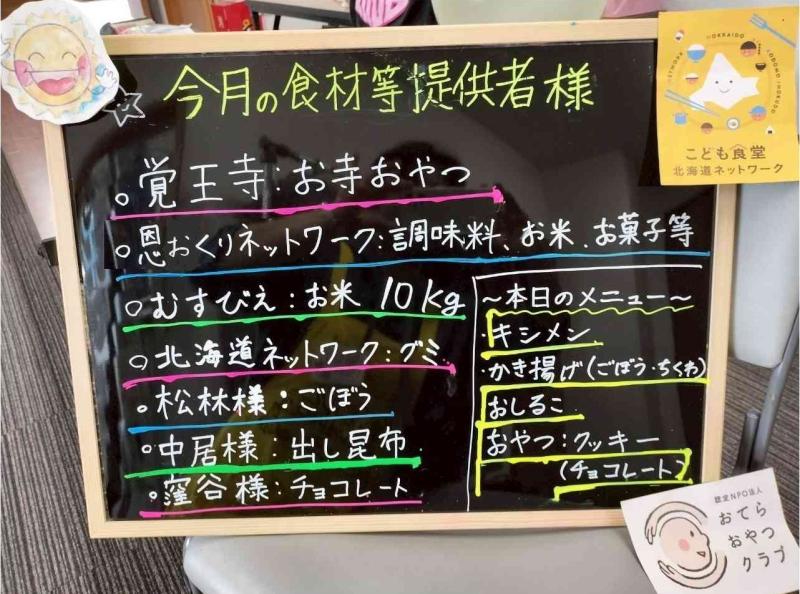 今月の食材等提供者様
。覚王寺:お寺おやつ
。恩おくりネットワーク:調味料、お米、お菓子等
。むすびえ:お米 10kg
。北海道ネットワーク:グミ
・松林様:ごぼう
・中居様:出し昆布
・窪谷様:チョコレート
～本日のメニュー～
・キシメン
・かき揚げ(ごぼう・ちくわ)
おしるこ
おやつ:クッキー
(チョコレート)
HOKKAIDO KODOMO SHOKUDO NETWORK
こども食堂
北海道ネットワーク
認定NPO法人
おてら
おやつ
クラブ